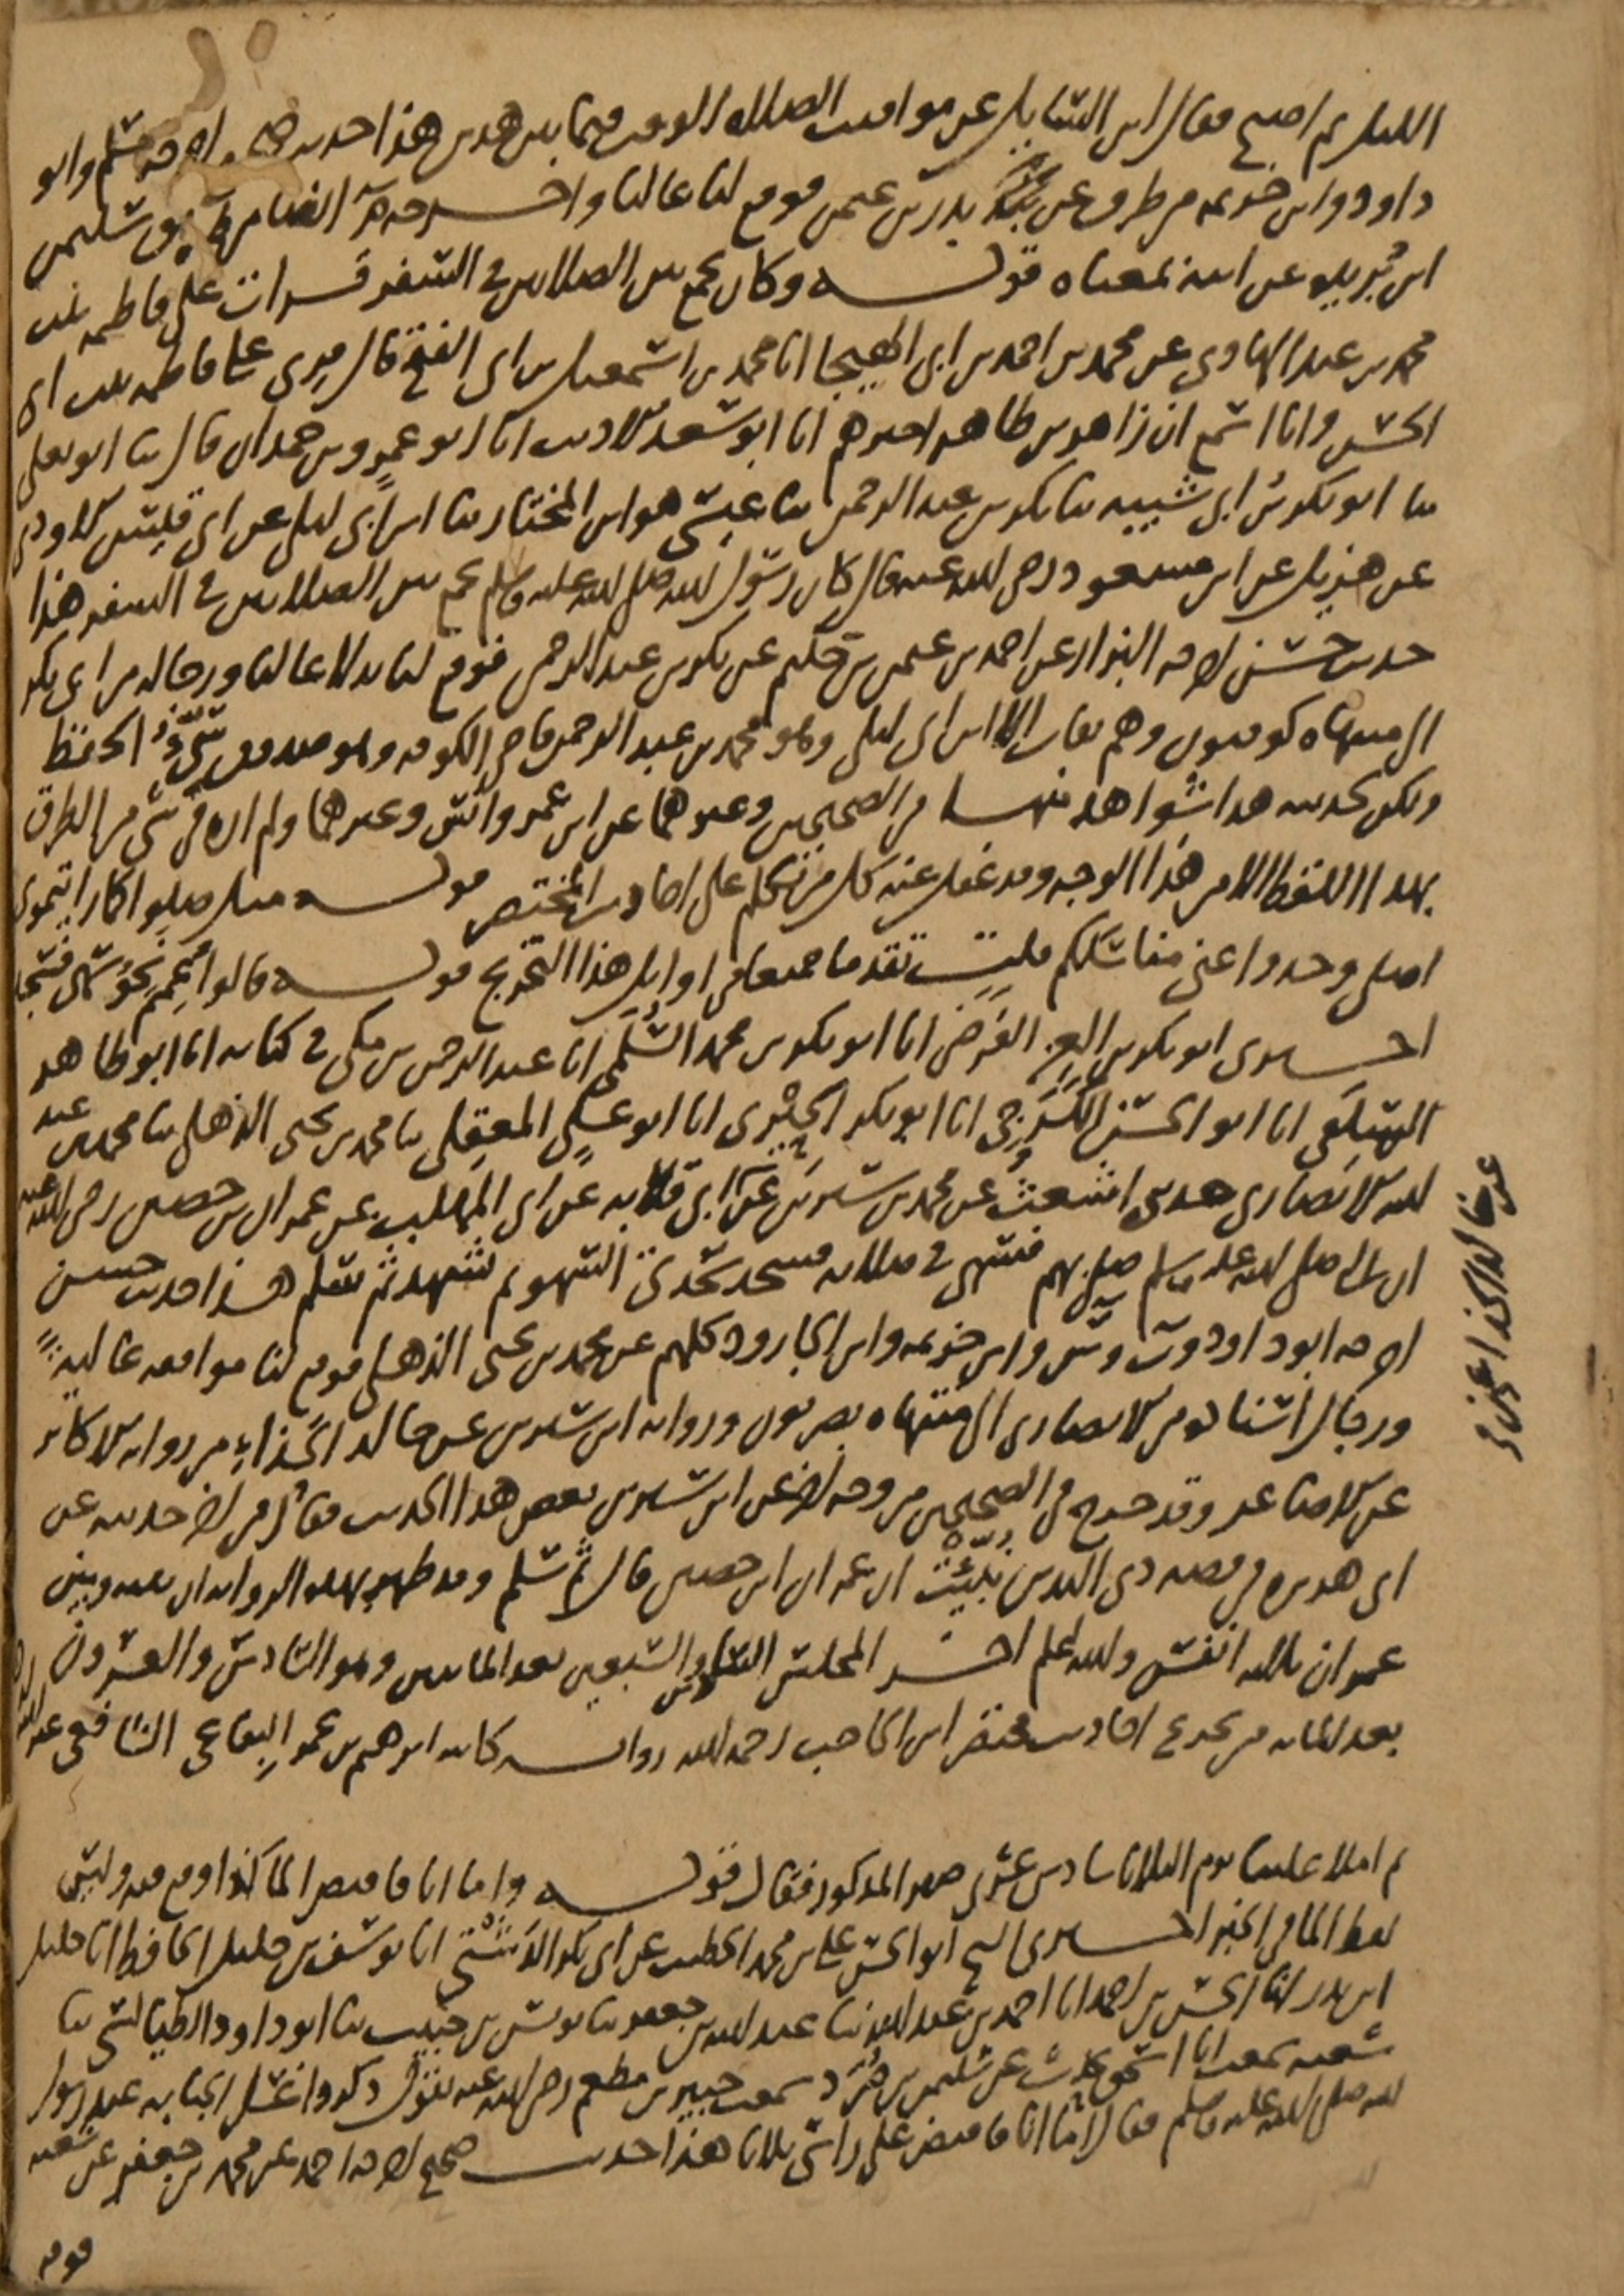 الليل ثم اصبح فقال اين السائل عن مواقيت الصلاة الوقت فيما بين هذين هذا حديث صحيح اخرجه مسلم وابو
داود وابن خزيمة من طرق عن بدر بن عثمن فوقع لنا عاليا واخرجه م ايضا من طريق سليمن
ابن بريدة عن ابيه بمعناه قوله وكان يجمع بين الصلاتين في السفر قرات على فاطمة بنت
محمد بن عبد الهادي عن محمد بن احمد بن ابي الهيجا انا محمد بن اسمعيل بن ابي الفتح قال قرئ على فاطمة بنت ابي
الحسن وانا اسمع ان زاهر بن طاهر اخبرهم انا ابو سعد الاديب انا ابو عمرو بن حمدان قال ثنا ابو يعلى
ثنا ابو بكر بن ابي شيبة ثنا بكر بن عبد الرحمن ثنا عيسى هو ابن المختار ثنا ابن ابي ليلى عن ابي قيس الاودي
عن هزيل عن ابن مسعود رضي الله عنه قال كان رسول الله صلى الله عليه وسلم يجمع بين الصلاتين في السفر هذا
حديث حسن اخرجه البزار عن احمد بن عثمن بن حكيم عن بكر بن عبد الرحمن فوقع لنا بدلا عاليا ورجاله من ابي بكر
الى منتهاه كوفيون وهم ثقات الا ابن ابي ليلى وهو محمد بن عبد الرحمن قاضي الكوفة وهو صدوق سيّء الحفظ
ولكن لحديثه هذا شواهد منها في الصحيحين وغيرهما عن ابن عمر وانس وغيرهما ولم اره في شي من الطرق
بهذا اللفظ الا من هذا الوجه وقد غفل عنه كل من تكلم على احاديث المختصر قوله مثل صلوا كما رايتموني
اصلي وخذوا عني مناسككم قلت تقدما جميعا في اوايل هذا التخريج قوله قالوا يعمم نحو سهى فسجد
اخبرني ابو بكر بن العز الفرضي انا ابو بكر بن محمد السلمي انا عبد الرحمن بن مكي في كتابه انا ابو طاهر
السلفي انا ابو الحسن الكرجي انا ابو بكر الحيري انا ابو علي المعقلي ثنا محمد بن يحيى الذهلي ثنا محمد بن عبد
الله الانصاري حدثني اشعث عن محمد بن سيرين عن ابي قلابة عن ابي المهلب عن عمران بن حصين رضي الله عنه
ان النبي صلى الله عليه وسلم صلى بهم فسهى في صلاته فسجد سجدتي السهو ثم تشهد ثم سلم هذا حديث حسن
اخرجه ابو داود وت وس وابن خزيمة وابن الجارود كلهم عن محمد بن يحيى الذهلي فوقع لنا موافقة عالية
ورجال اسناده من الانصاري الى منتهاه بصريون ورواية ابن سيرين عن خالد الحذاء من رواية الاكابر
عن الاصاغر وقد خرج في الصحيحين من وجه اخر عن ابن سيرين بعض هذا الحديث فقال في اخر حديثه عن
ابي هريرة في قصة ذي اليدين نبئت ان عمران ابن حصين قال ثم سلم وقد ظهر بهذه الرواية ان بينه وبين
عمران ثلاثة انفس والله اعلم اخر المجلس السادس والسبعين بعد المايتين وهو السادس والعشرون
بعد الماية من تخريج احاديث مختصر ابن الحاجب رحمه الله رواية كاتبه ابرهيم بن عمر البقاعي الشافعي عنه
ثم املا علينا يوم الثلاثا سادس عشري صفر المذكور فقال قوله واما انا فافيض الما كذا وقع فيه وليس
لفظ الما في الخبر اخبرني الشيخ ابو الحسن علي بن محمد الخطيب عن ابي بكر الدشتي انا يوسف بن خليل الحافظ انا خليل
ابن بدر انا الحسن بن احمد انا احمد بن عبد الله ثنا عبد الله بن جعفر ثنا يونس بن حبيب ثنا ابو داود الطيالسي ثنا
شعبة سمعت ابا اسحق يحدث عن سليمن بن صرد سمعت جبير بن مطعم رضي الله عنه يقول ذكروا غسل الجنابة عند رسول
الله صلى الله عليه وسلم فقال اما انا فافيض على راسي ثلاثا هذا حديث صحيح اخرجه احمد عن محمد بن جعفر عن شعبة
فوقع
عن خالد الحذا